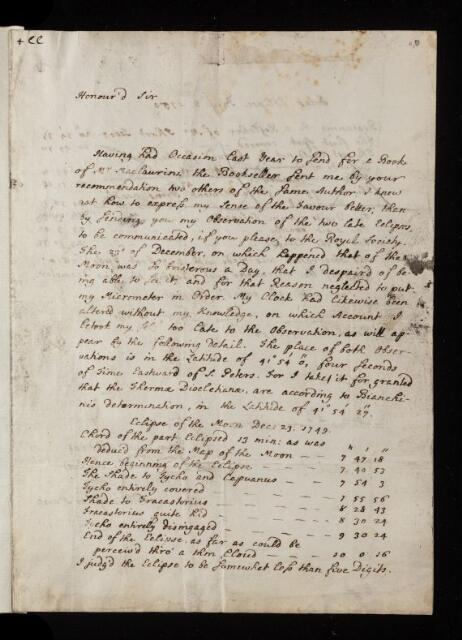 Honour'd Sir
Having had Occasion last Year to send for a Book
of Mr Maclaurins, the Bookseller sent me by your
recommendation two others of the same Author. I knew
not how to express my Sense of the favour better, then
by sending you my Observation of the two late Eclipses,
to be communicated, if you please, to the Royal Society.
The 23d of December, on which happened that of the
Moon, was so boisterous a Day, that I despaired of be-
ing able to see it, and for that Reason neglected to put
my Micrometer in Order. My Clock had likewise been
altered without my Knowledge, on which Account I
too late to the Observation, as will ap-
pear by the following detail. The place of both Obser-
vations is in the Latitude of 41° 54' 0", four Seconds
of Time Eastward of S. Peters. For I take it for granted
that the Thermæ Diocletianæ, are according to Bianchi-
nis determination, in the Latitude of 41° 54' 27".
Eclipse of the Moon Dec: 23. 1749.
Chord of the part Eclipsed 13 min: as was
deduced from the Map of the Moon — — 7 47 18
Hence beginning of the Eclipse — — — 7 40 53
The Shade to Tycho and Capuanus — — — 7 54 3
Tycho entirely covered — — — 7 55 56
Shade to Fracastorius — — — 8 28 43
Fracastorius quite hid — — — 8 30 24
Tycho entirely disingaged — — — 9 30 24
End of the Eclipse, as far as could be
perceiv'd thro' a thin Cloud — — — 10 0 16
I judg'd the Eclipse to be somewhat less than five Digits.